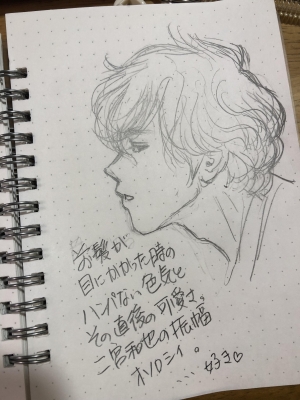 お髪が
目にかかった時の
ハンパない色気と
その直後の可愛さ。
二宮和也の振幅
オソロシイ。
...好き♡